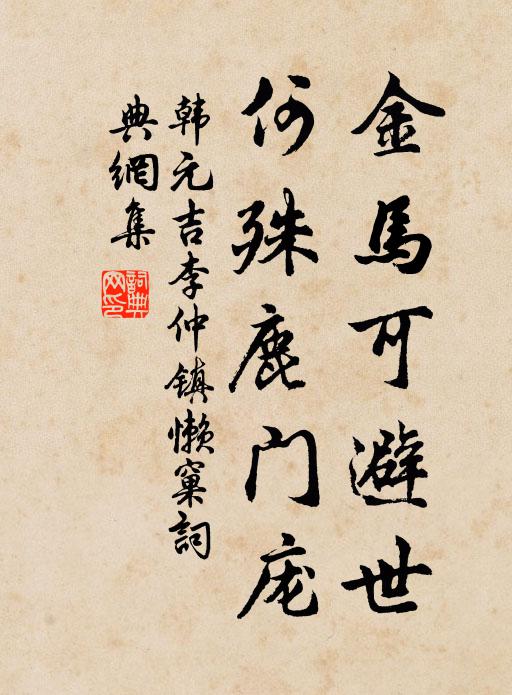 金馬可避世
何殊鹿门庞
韩元吉李仲镇懒窠詞
典網集
詞典网印